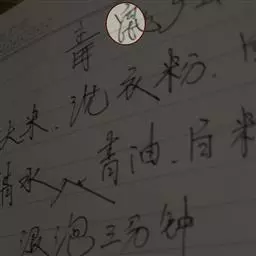 毒
大米、洗衣粉、
清水入青油、白
浸泡三分钟